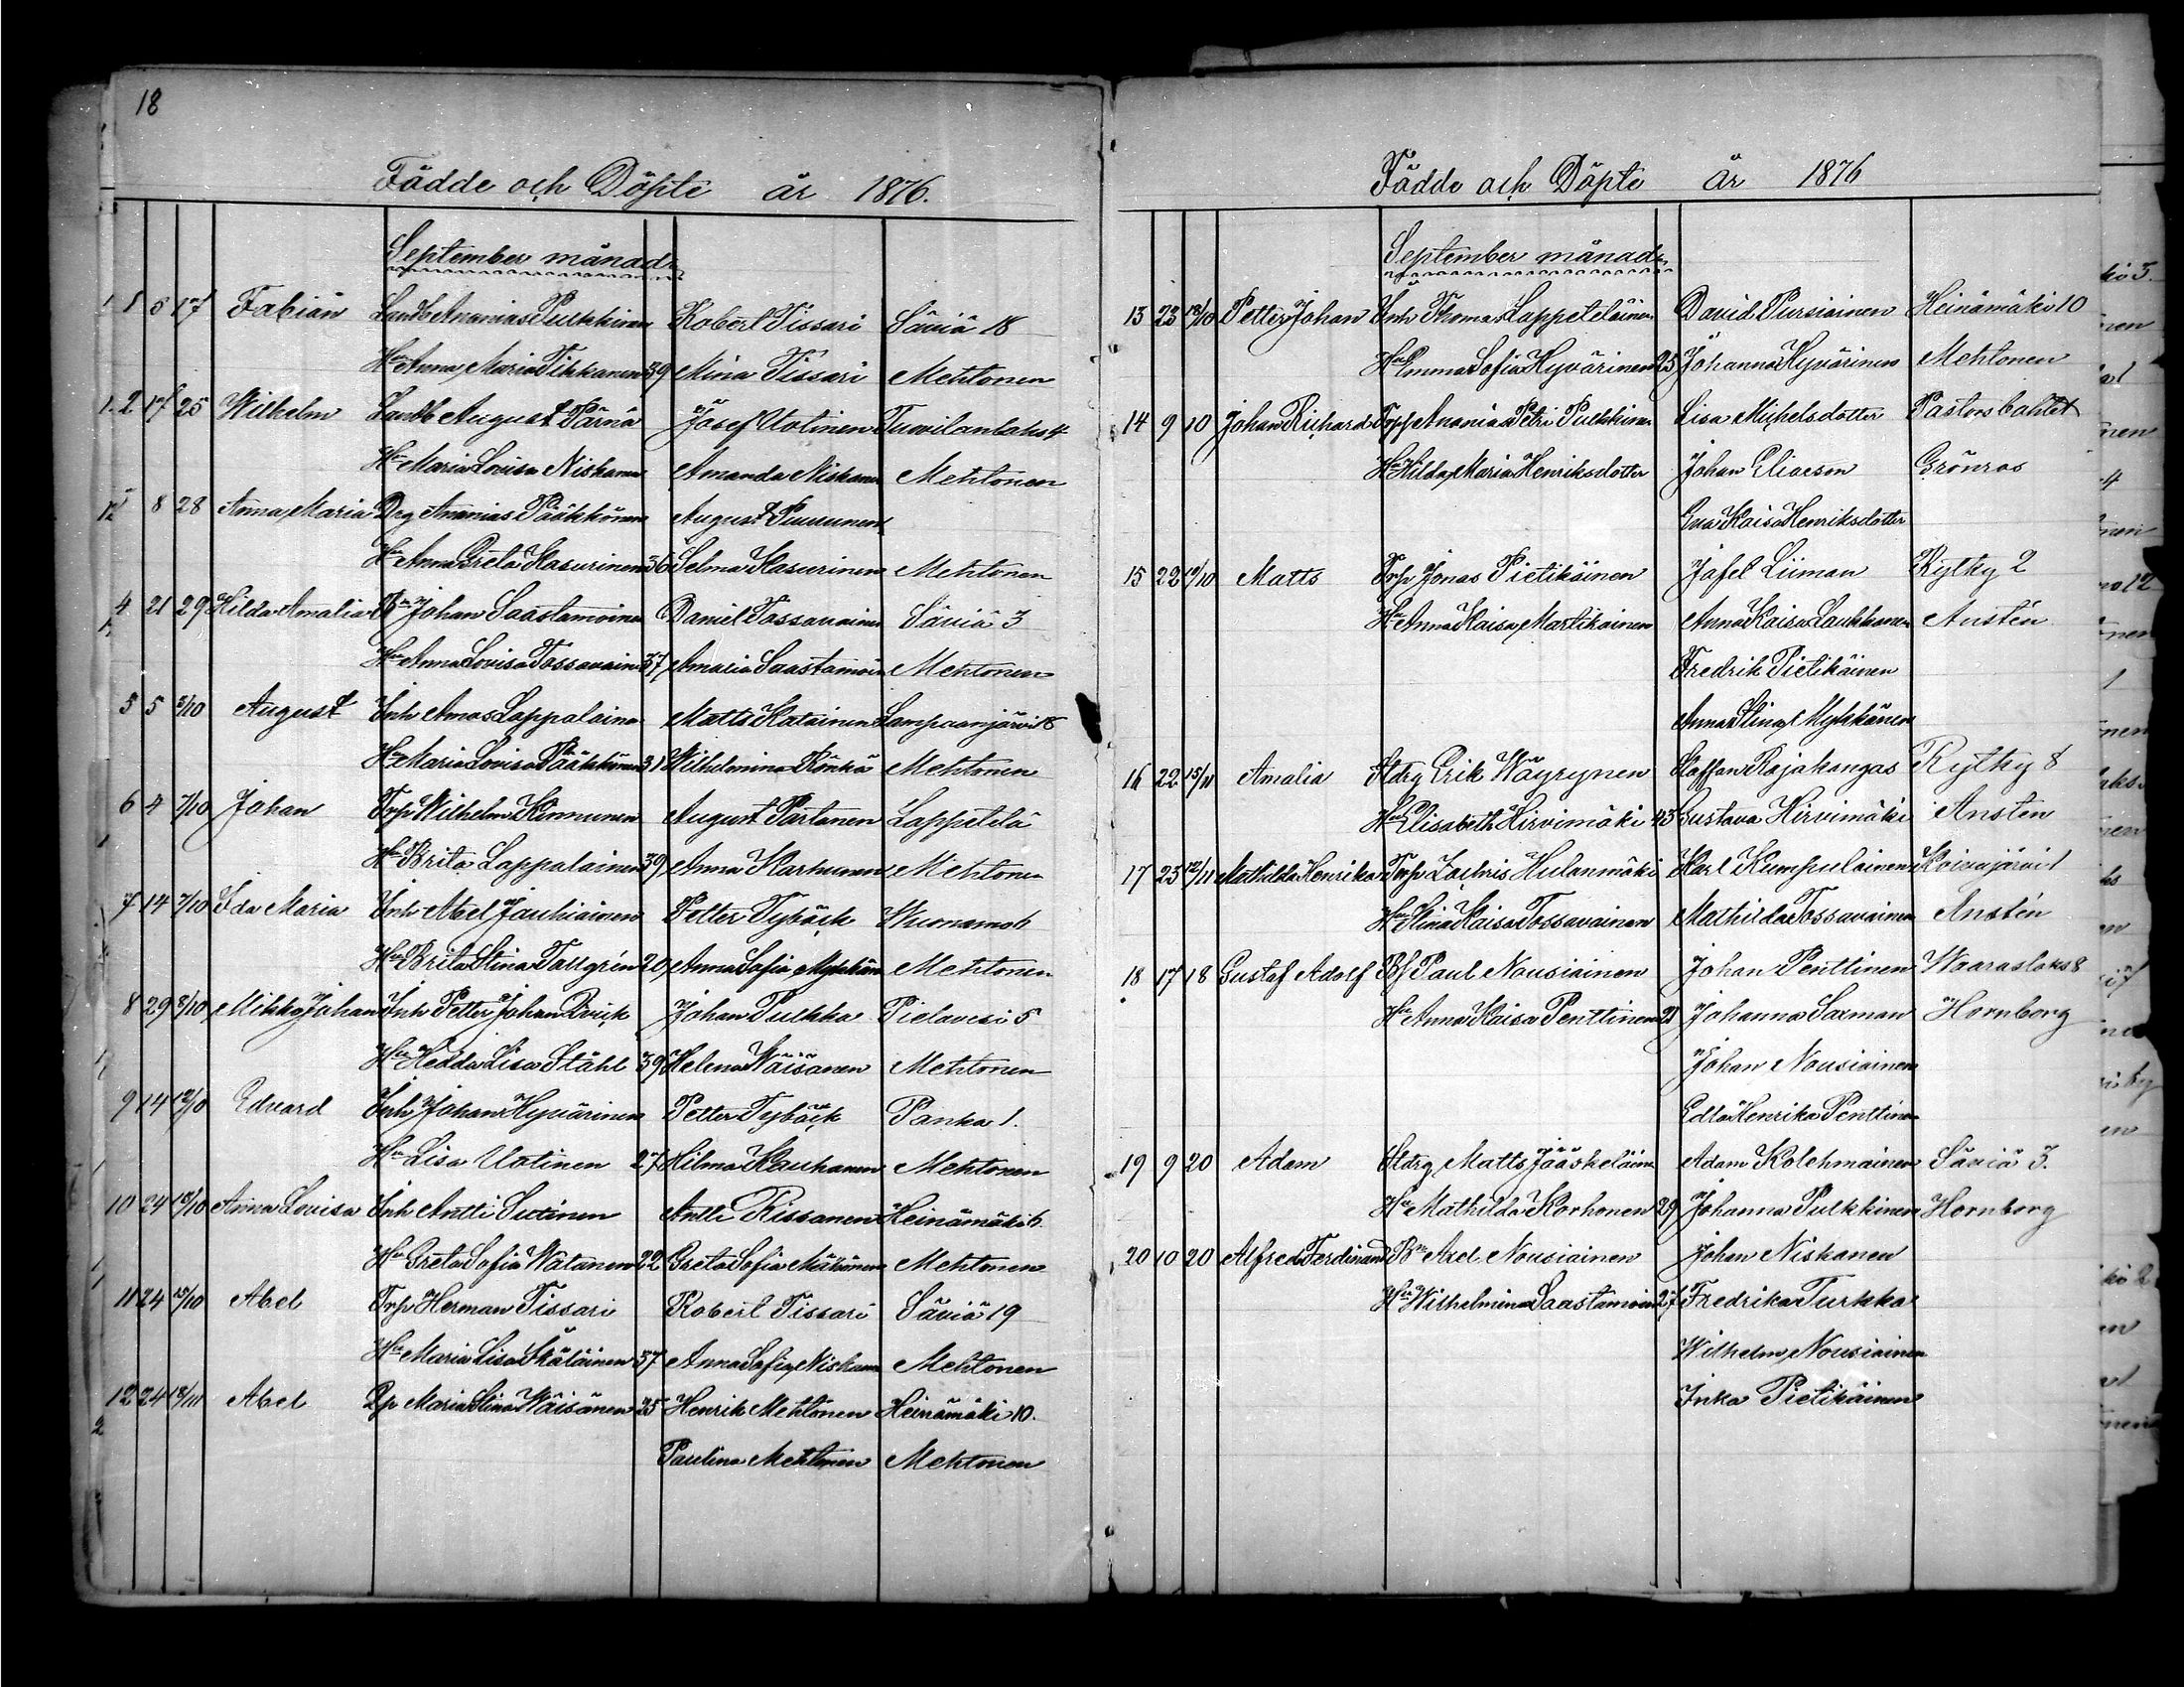 18
Födde och Döpte år 1876.
September månad.
1 5 17 Fabian Landb Ananias Pulkkinen Robert Tissari Säviä 18
Hu Anna Maria Tikkanen 39 Mina Tissari Mehtonen
2 17 25 Wilhelm Landb August Pärnä Josef Uotinen Tuovilanlaks 4
Hu Maria Lovisa Niskanen Amanda Niskanen Mehtonen
8 28 Anna Maria Drg Ananias Pääkkönen August Puurunen
Hu Anna Greta Kasurinen 36 Selma Kasurinen Mehtonen
4 21 29 Hilda Amalia Bn Johan Saastamoinen Daniel Tossavainen Säviä 3
Hu Anna Lovisa Tossavainen 37 Amaria Saastamoin Mehtonen
5 5 5/10 August Inh Amos Lappalainen Matts Katainen Lampaanjärvi 8
Hu Maria Lovisa Pääkkönen 31 Wilhelmina Rönkä Mehtonen
6 4 7/10 Johan Trp Wilhelm Kinnunen August Partanen Lappetelä
Hu Brita Lappalainen 39 Anna Karhunen Mehtonen
7 14 7/10 Ida Maria Inh Abel Jauhiainen Petter Tybäck Wuonamo 6
Hu Brita Stina Tallgrén 20 Anna Sofia Mykkän Mehtonen
8 29 8/10 Mikko Johan Inh Petter Johan Qvick Johan Pulkka Pielavesi 5
Hu Hedda Lisa Ståhl 39 Helena Wäisänen Mehtonen
9 14 12/10 Edvard Inh Johan Hyvärinen Petter Tybäck Panka 1.
Hu Lisa Uotinen 27 Hilma Kauhanen Mehtonen
10 24 Anna Lovisa Inh Antti Sutinen Antti Rissanen Heinämäki 6.
Hu Greta Sofia Watanen 22 Greta Sofia Mähönen Mehtonen
11 24 15/10 Abel Trp Herman Tissari Robert Tissari Säviä 19
Hu Maria Lisa 37 Anna Sofia Niskanen Mehtonen
12 24 Abel Qp Maria Stina Wäisänen 25 Henrik Mehtonen Heinämäki 10.
Paulina Mehtonen Mehtonen
Födde och Döpte år 1876
September månad.
13 23 Petter Johan Inh Thomas Lappeteläinen David Pursiainen Heinämäki 10
Hu Emma Sofia Hyvärinen 25 Johanna Hyvärinen Mehtonen
14 9 10 Johan Richard Trpf Ananias Petri Pulkkinen Lisa Michelsdotter Pastorsbohlet
Hu Hilda Maria Henriksdotter Johan Eliasson Grönros
Eva Kaisa Henriksdotter
15 22 Matts Trp Jonas Pietikäinen Jafet Liiman Rytky 2
Hu Anna Kaisa Martikainen Anna Kaisa Laukkanen Anstén
Fredrik Pietikäinen
Anna Stina Mykkänen
16 22 15/11 Amalia Stdrg Erik Wäyrynen Staffan Rajakangas Rytky 8
Hu Elisabeth Hirvimäki 43 Gustava Hirvimäki Ansten
17 25 12/11 Mathilda Henrika Trp Zachris Hulanmäki Karl Kumpulainen Koivujärvi 1
Hu Stina Kaisa Tossavainen Mathilda Tossavainen Anstén
18 17 18 Gustaf Adolf Bf Paul Nousiainen Johan Penttinen Waaraslaks 8
Hu Anna Kaisa Penttinen 21 Johanna Saxman Hornborg
Johan Nousiainen
Edla Henrika Penttinen
19 9 20 Adam Stdrg Matts Jääskeläinen Adam Kolehmainen Säviä 3.
Hu Mathilda Korhonen 29 Johanna Pulkkinen Hornborg
20 10 20 Alfred Ferdinand Bn Axel Nousiainen Johan Niskanen
Hu Wilhelmina Saastamoin 27 Fredrika Turkka
Wilhelm Nousiainen
Inka Pietikäinen